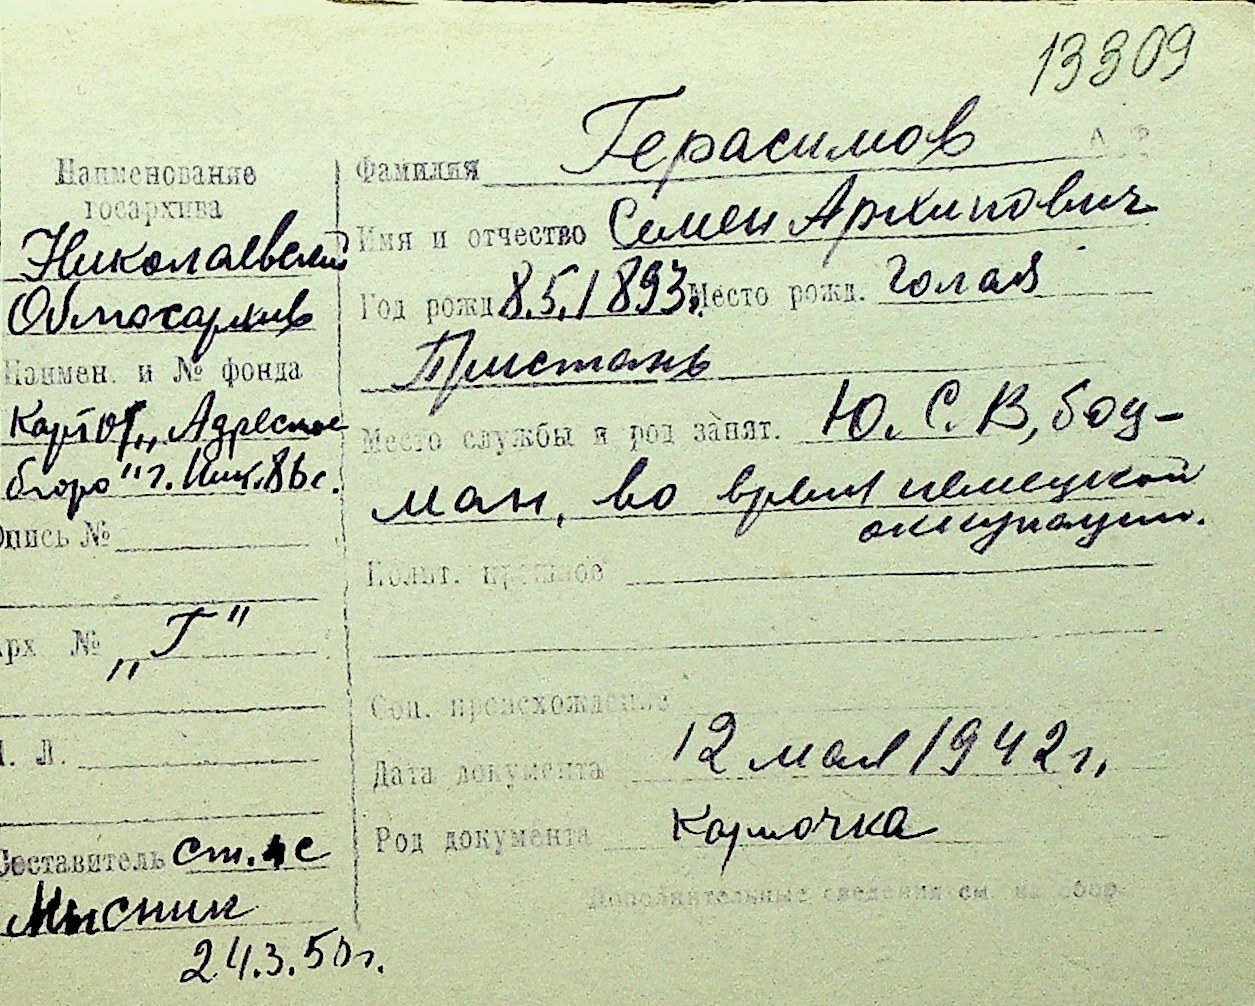 13309
Фамилия Герасимов
Имя и отчество Семен Архипович
Год рожд. 8.5.1893г. Место рожд. Голая
Пристань
Место службы и род занят. Ю.С.В, боц-
ман, во время немецкой
оккупации.
Полит. прошлое
Соц. происхождение
Дата документа 12 мая 1942 г.
Род документа карточка
Дополнительные сведения см. на обор.
Наименование
госархива
Николаевский
Облгосархив
Наимен. и № фонда
Карт. „Адресное
бюро" г. Ник.
Опись №
Арх №
„Г"
Л. Л.
Составитель ст. нс
Мысник
24.3.50г.